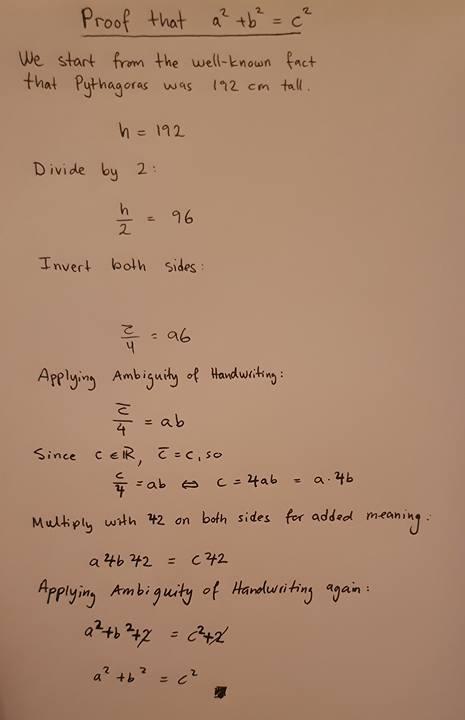 Proof that a² + b² = c²
We start from the well-known fact
that Pythagoras was 192 cm tall.
h = 192
Divide by 2:
h/2 = 96
Invert both sides:
2/4 = 96
Applying Ambiguity of Handwriting:
c̅/4 = ab
Since c ∈ ℝ, c̅ = c, so
c/4 = ab ⇔ c = 4ab = a · 4b
Multiply with 42 on both sides for added meaning:
a4b42 = c42
Applying Ambiguity of Handwriting again:
a²+b²+2 = c²+2
a² + b² = c²